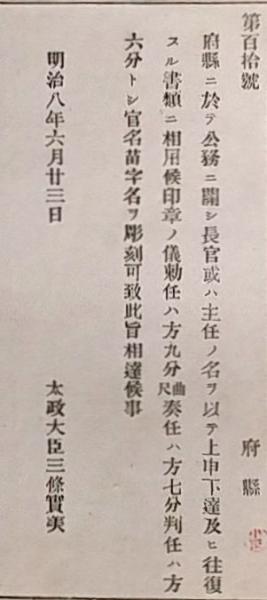 第百拾號
府縣
府縣ニ於テ公務ニ關シ長官或ハ主任ノ名ヲ以テ上申下達及ヒ往復
スル書類ニ相用候印章ノ儀勅任ハ方九分曲尺奏任ハ方七分判任ハ方
六分トシ官名苗字名ヲ彫刻可致此旨相達候事
明治八年六月廿三日
太政大臣三條實美